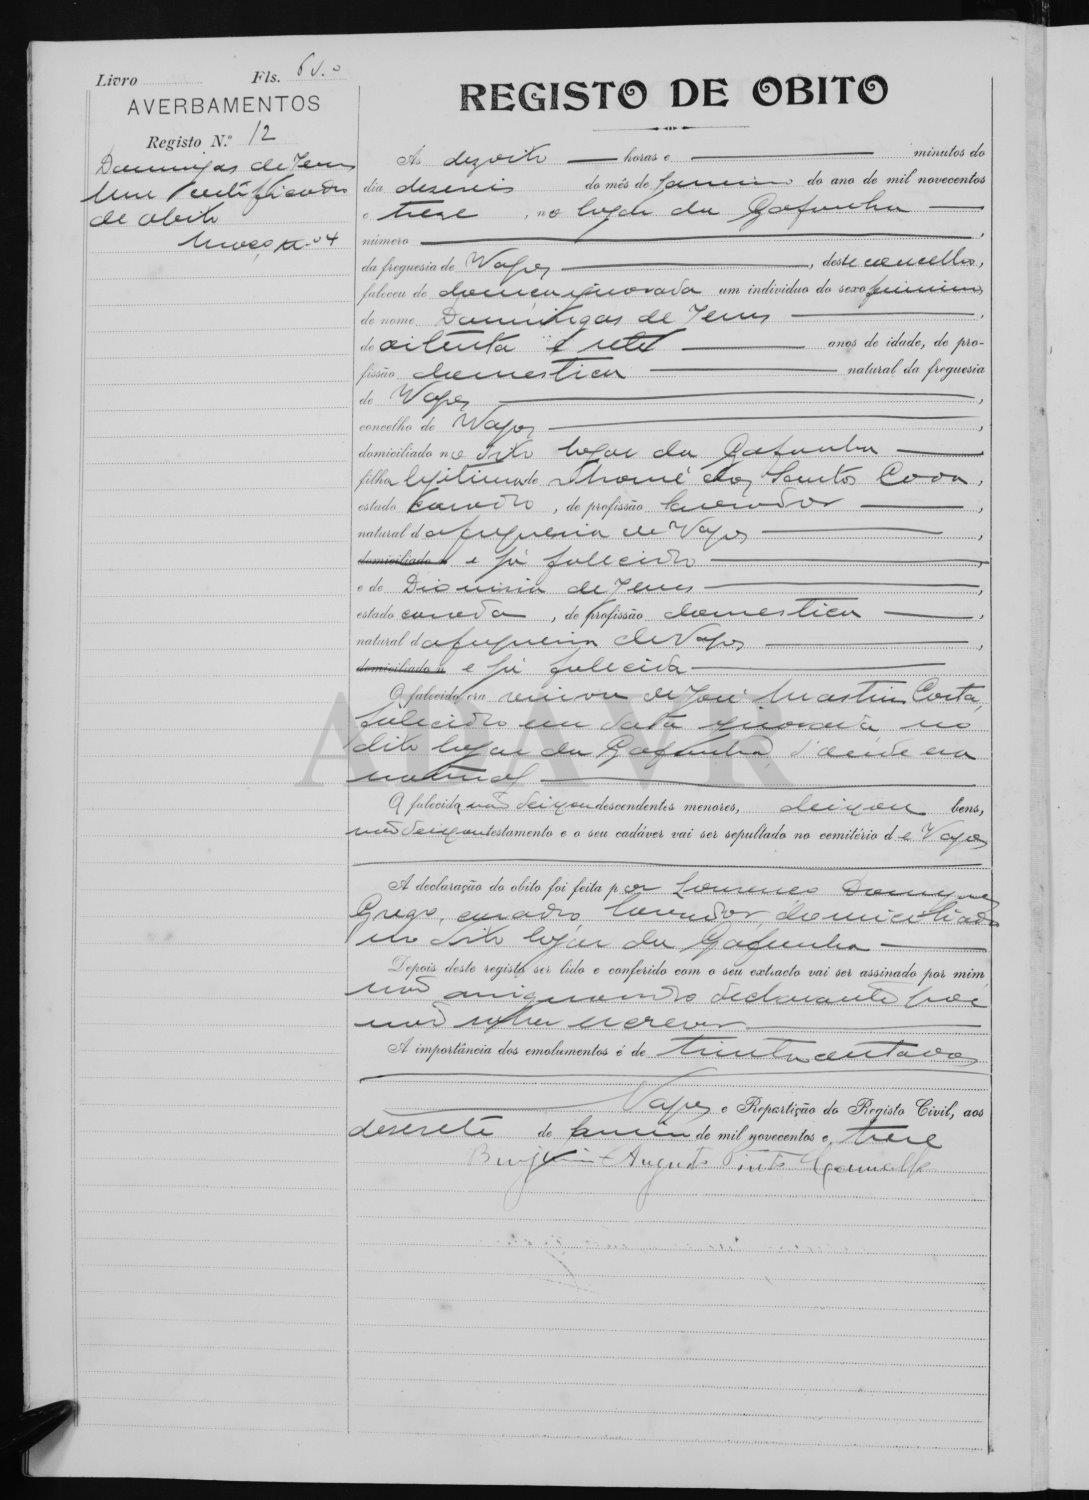 Livro Fls. 6 v.o
AVERBAMENTOS
Registo N.º 12
Domingas de Jesus
Um certificado
de obito
REGISTO DE OBITO
Às dezoito — horas e — minutos do
dia deseseis do mês de Janeiro do ano de mil novecentos
e trese, no logar da Gafanha —
número —,
da freguesia de Vagos —, deste concelho,
faleceu de doença ignorada um individuo do sexo feminino,
de nome Domingas de Jesus —,
de oitenta e sete — anos de idade, de pro-
fissão domestica — natural da freguesia
de Vagos —,
concelho de Vagos —,
domiciliado no dito logar da Gafanha —
filha legitima de Thomé dos Santos Cova,
estado casado, de profissão lavrador —,
natural da freguesia de Vagos —,
domiciliado n e já falecido —
e de Dionisia de Jesus —,
estado casada, de profissão domestica —,
natural da freguesia de Vagos —,
domiciliado n e já falecida —
O falecido era viuva de José Martins Costa,
falecido em data ignorada no
dito logar da Gafanha d'onde era
natural —
A falecida não deixou descendentes menores, deixou bens,
não deixou testamento e o seu cadáver vai ser sepultado no cemitério de Vagos
A declaração do obito foi feita por Lourenço Domingues
Grego, casado, lavrador, domiciliado
no dito logar da Gafanha —
Depois deste registo ser lido e conferido com o seu extracto vai ser assinado por mim
não assignando o declarante por
não saber escrever —
A importância dos emolumentos é de trinta centavos
— Vagos e Repartição do Registo Civil, aos
desesete de Janeiro de mil novecentos e trese
Benjamim Augusto Pinto
ADAVR